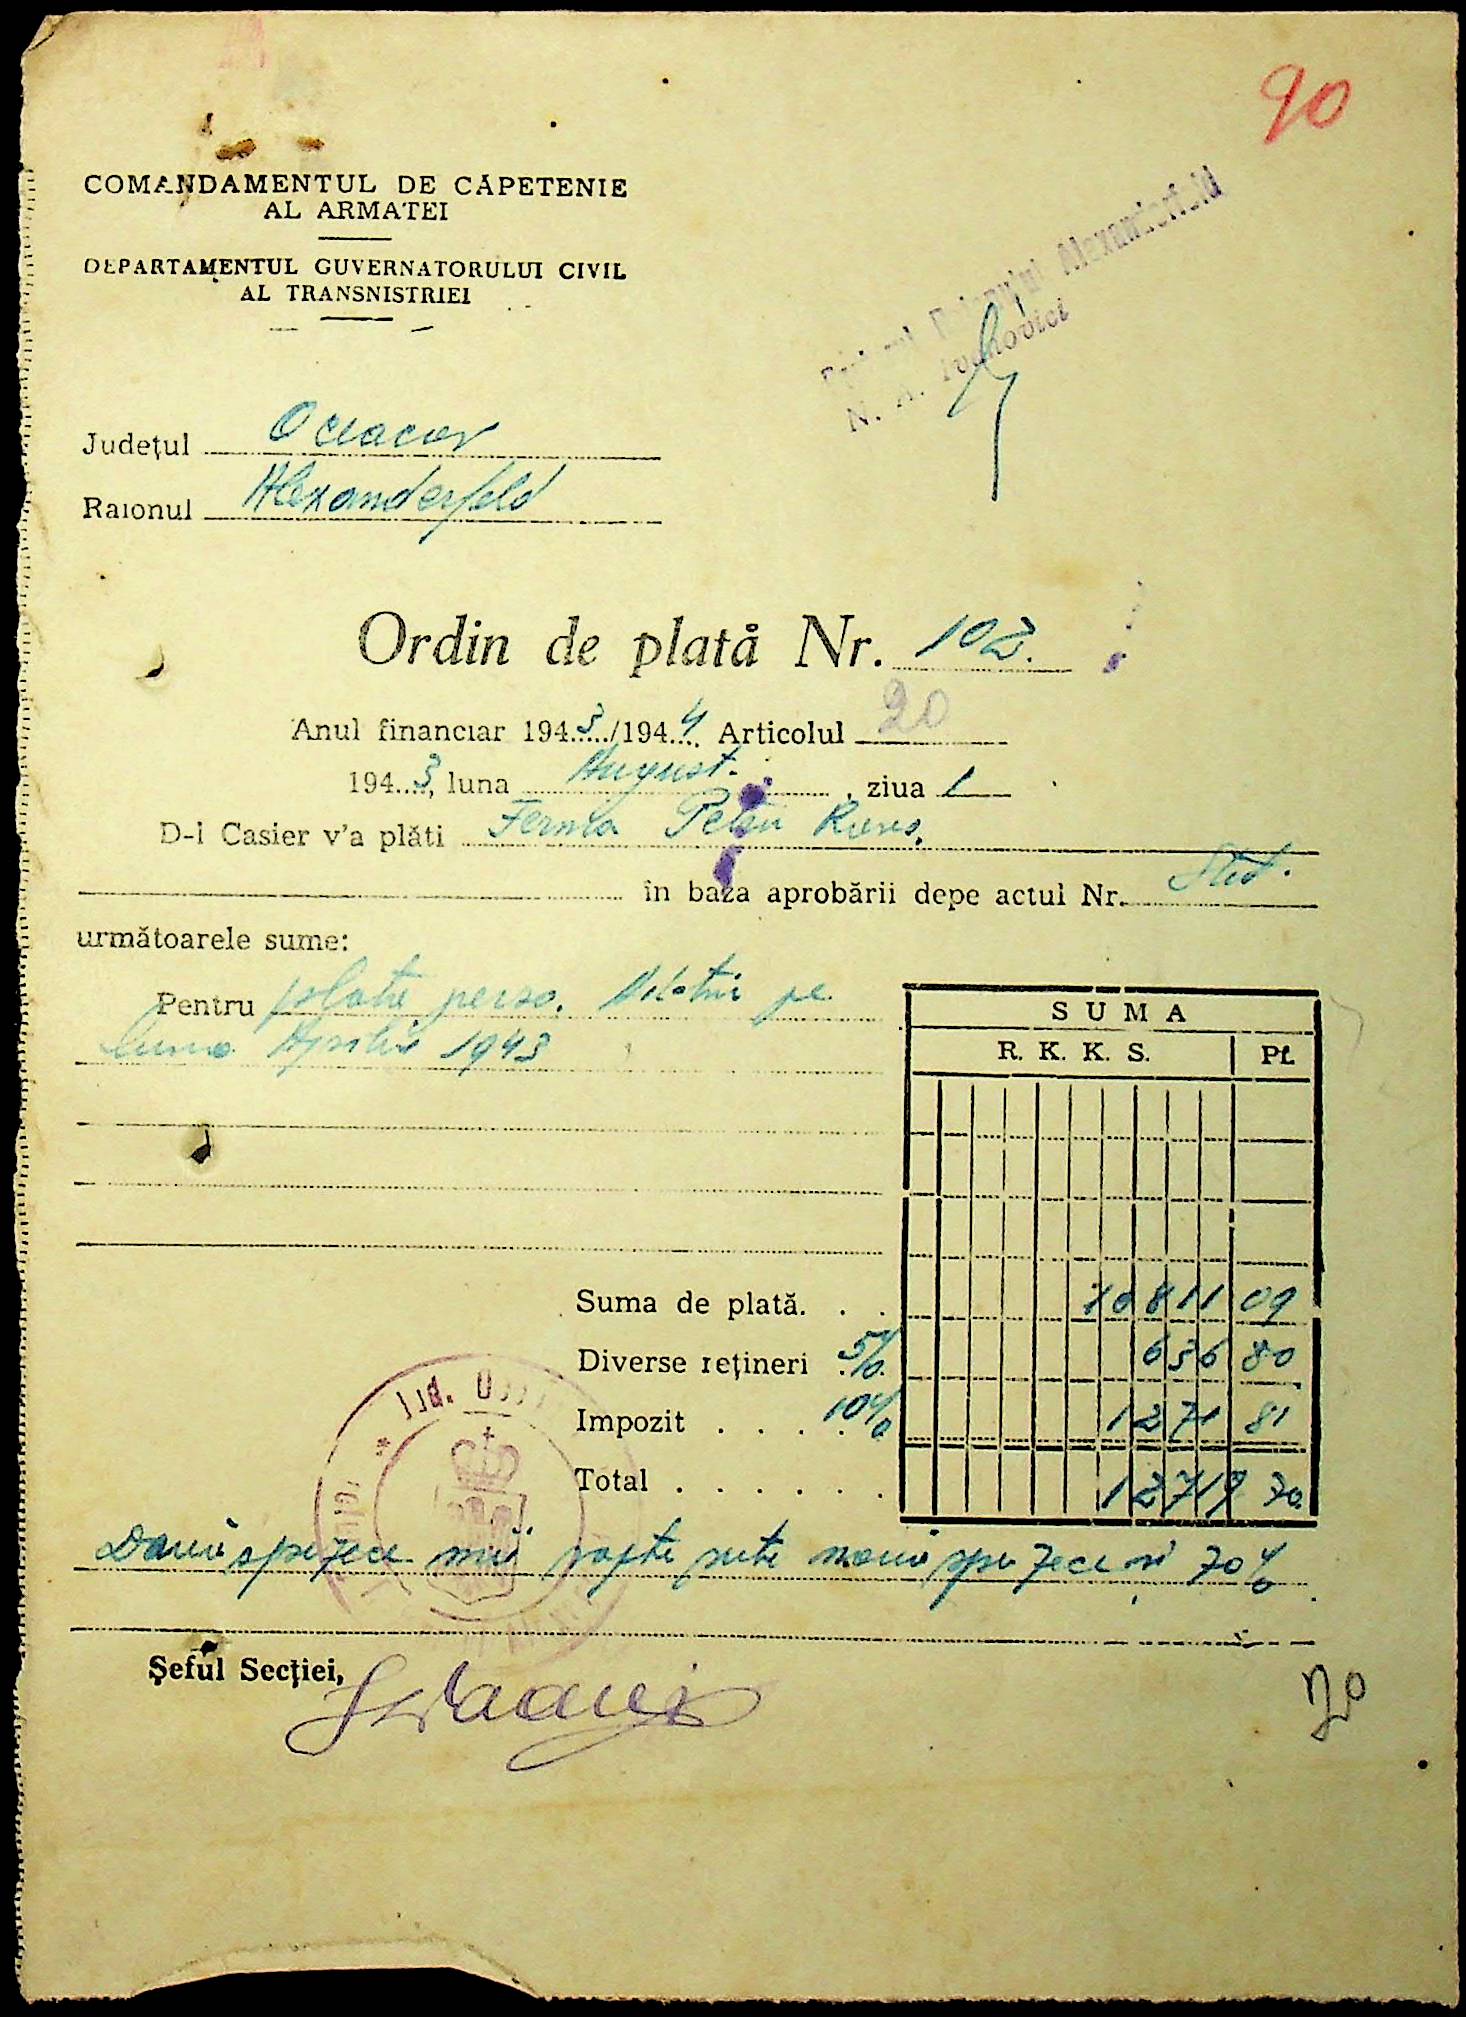 90
COMANDAMENTUL DE CAPETENIE
AL ARMATEI
DEPARTAMENTUL GUVERNATORULUI CIVIL
AL TRANSNISTRIEI
Alexanderfeld
N. A.
Județul Oceacov
Raionul Alexanderfeld
Ordin de plată Nr. 102.
Anul financiar 1943/1944 Articolul 20
1943, luna August. , ziua 1
D-l Casier v'a plăti Ferma Petru Rares.
în baza aprobării depe actul Nr. Stat.
următoarele sume:
Pentru plata perso. pe
luna Aprilie 1943
SUMA
R. K. K. S. Pf.
Suma de plată. . . 10811 09
Diverse rețineri 5% 636 80
Impozit . . . . 10% 1271 81
Total . . . . . . . 12719 70
Două spr zece mii șapte sute nouă spr zece și 70%
Șeful Secției,
70